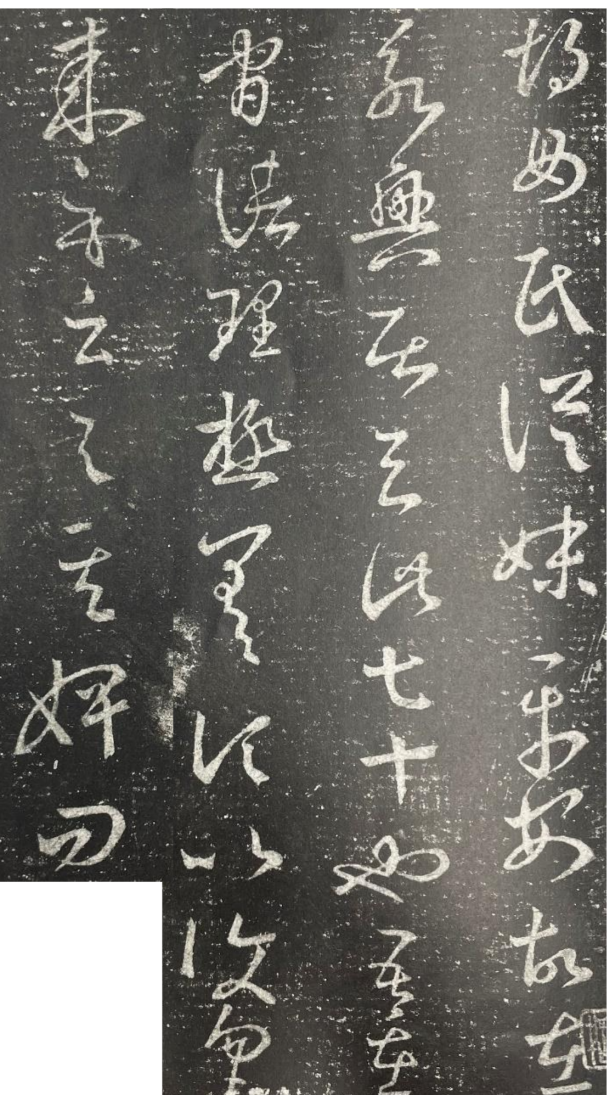 胡母氏從妹平安故在
永興居去此七十也吾在
官諸理極差頃比復勿勿
來示云與其婢問